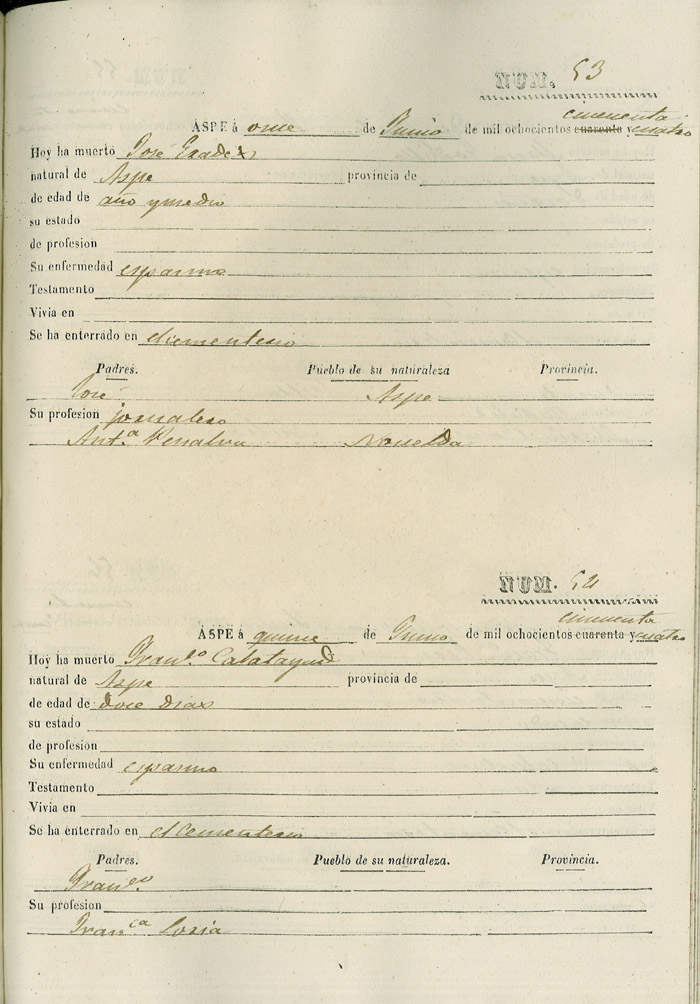 NUM. 53
cincuenta
ASPE á once de Junio de mil ochocientos cuarenta y cuatro
Hoy ha muerto José Prades
natural de Aspe provincia de
de edad de año y medio
su estado
de profesion
Su enfermedad espasmo
Testamento
Vivia en
Se ha enterrado en el cementerio
Padres. Pueblo de su naturaleza Provincia.
José Aspe
Su profesion jornalero
Ant.ª Penalva Novelda
NUM. 54
cincuenta
ASPE á quince de Junio de mil ochocientos cuarenta y cuatro
Hoy ha muerto Fran.co Calatayud
natural de Aspe provincia de
de edad de doce dias
su estado
de profesion
Su enfermedad espasmo
Testamento
Vivia en
Se ha enterrado en el cementerio
Padres. Pueblo de su naturaleza. Provincia.
Fran.co
Su profesion
Fran.ca Soria